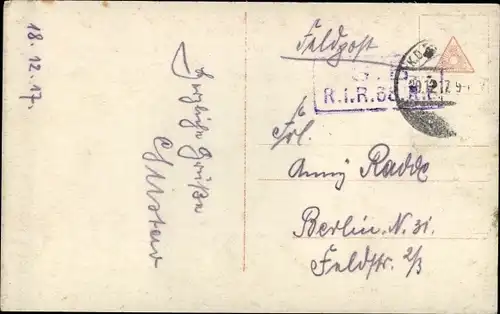 18. 12. 17.
Herzliche Grüße
Gustav
Feldpost
R.I.R. 68
20.12.17. 9-
Frl.
Anny Radde
Berlin. N. 31.
Feldstr. 2/3